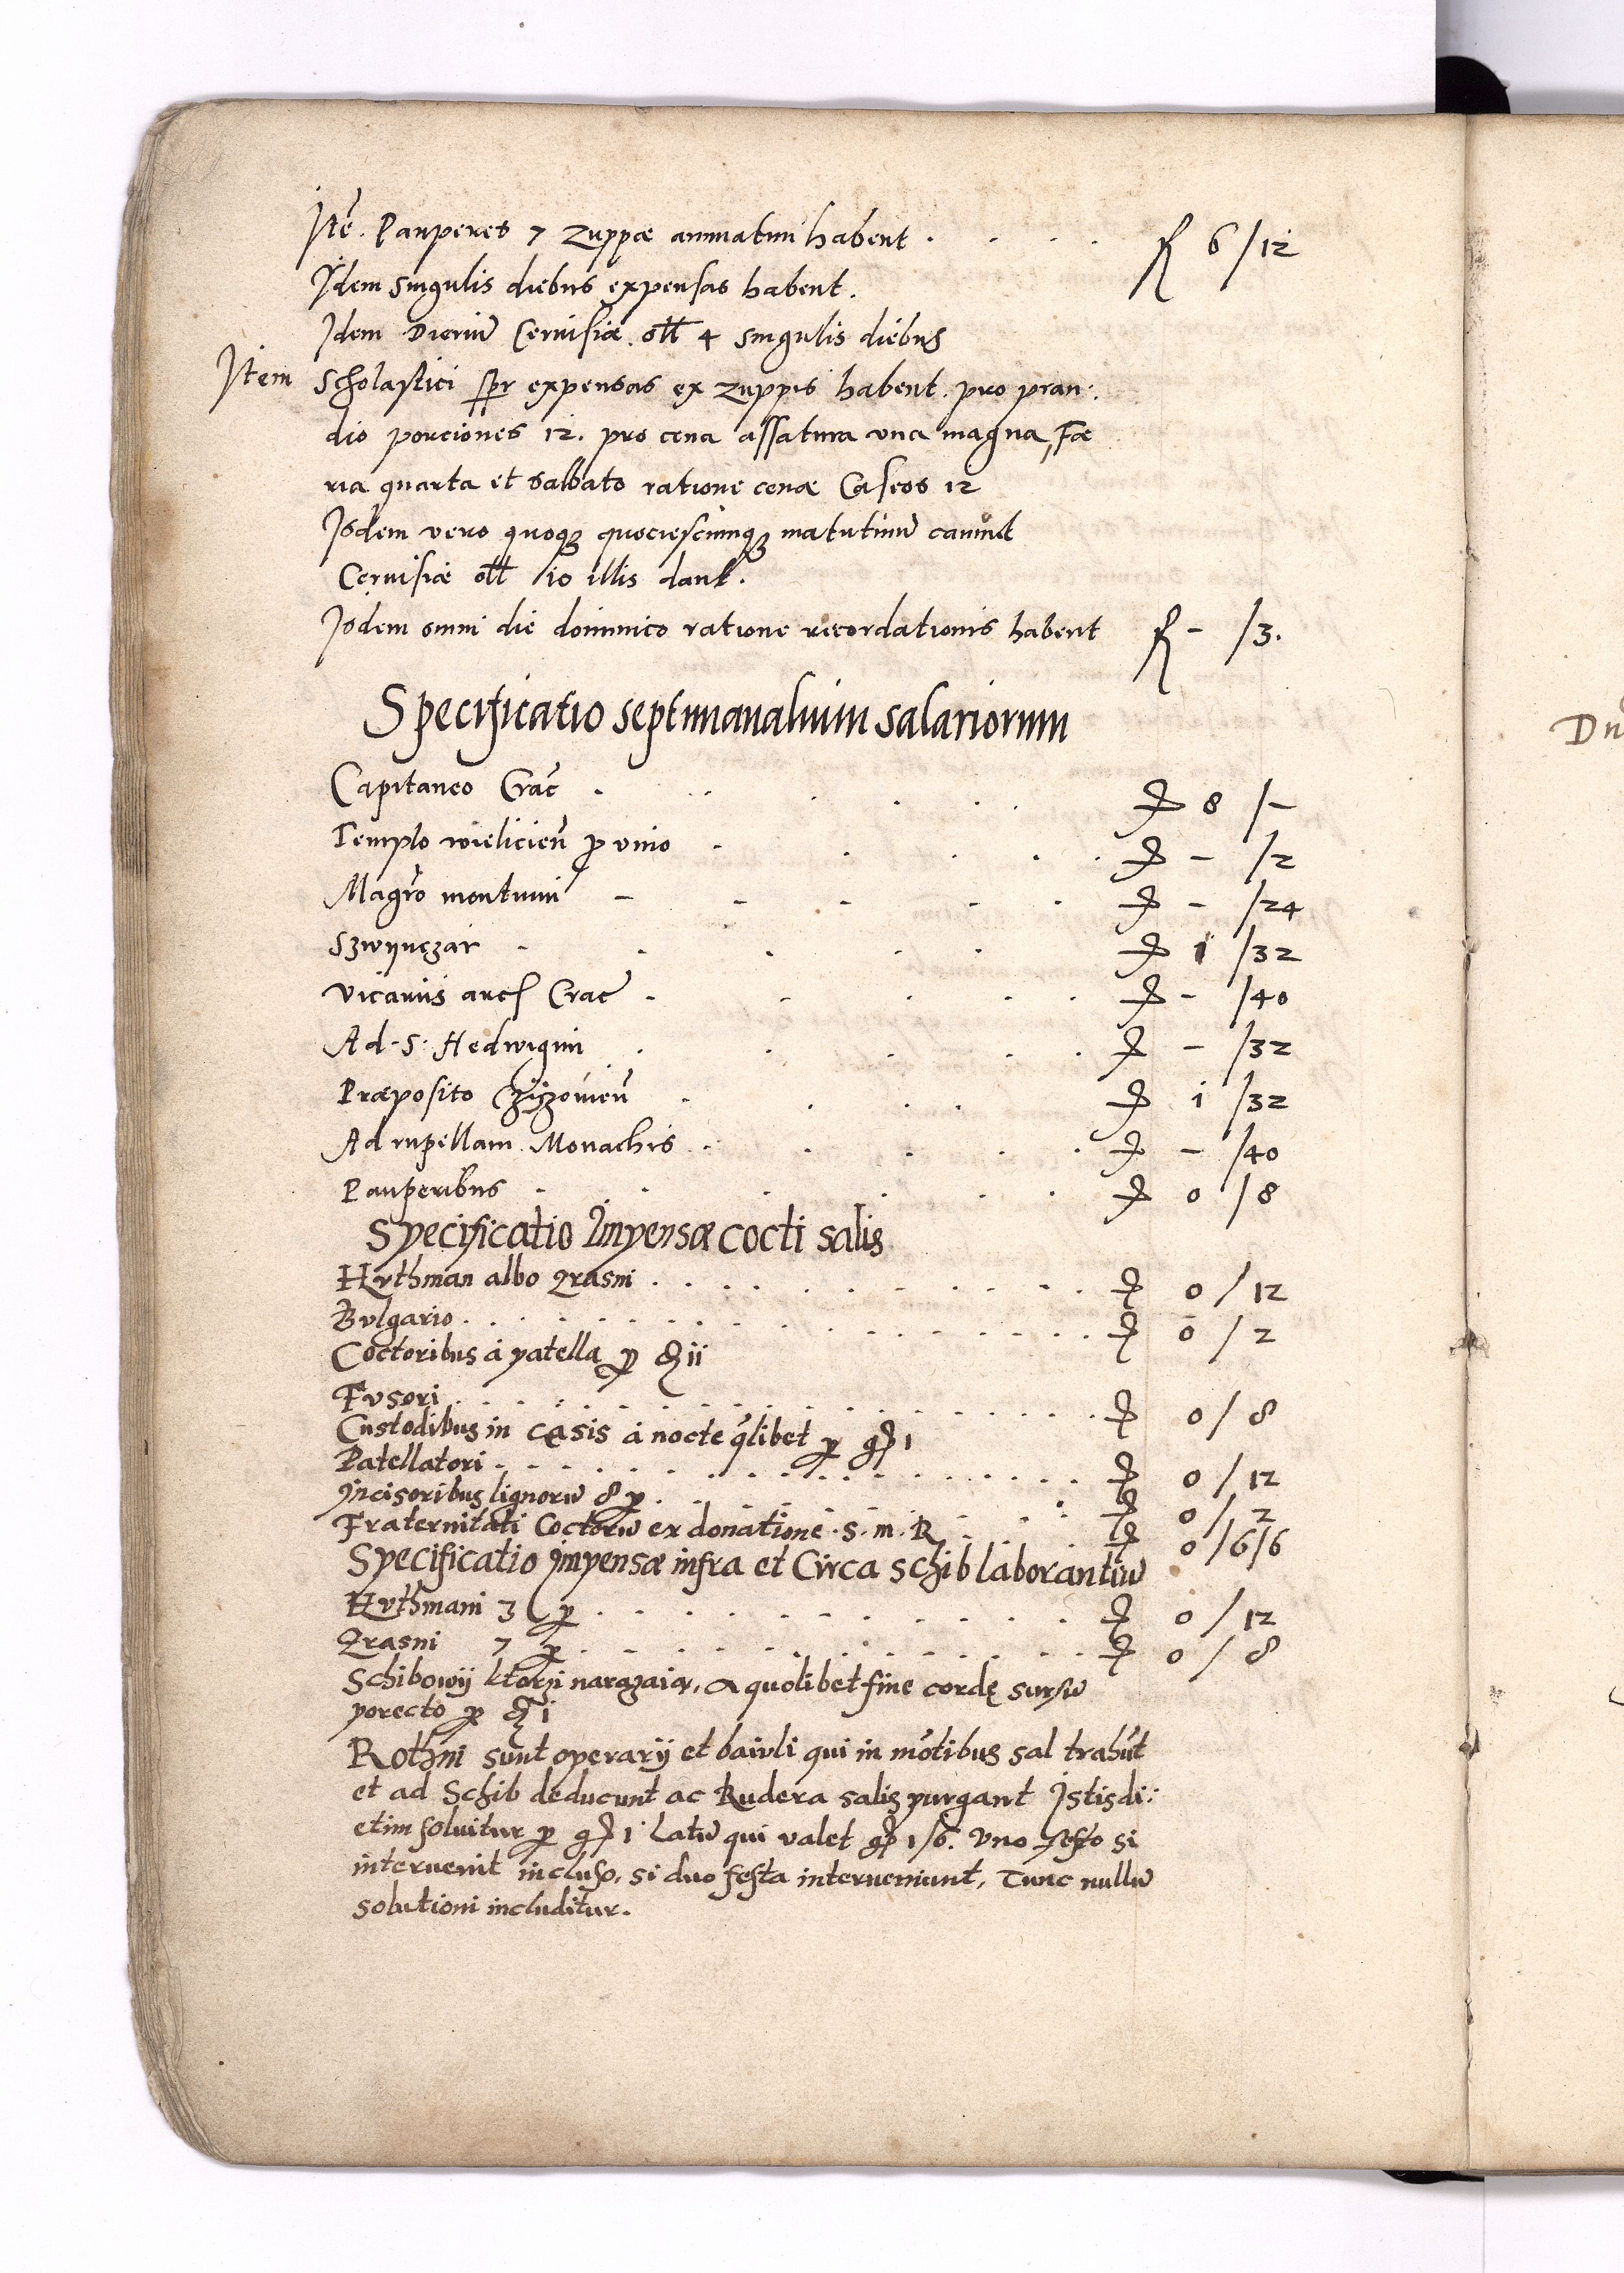 Itē. Pauperes 7 Zuppæ annuatim habent . . . . f 6 /12
Idem singulis diebus expensas habent.
Idem Dierum̄ Ceruisiæ oll 4 singulis diebus
Item Scholastici expensas ex zuppis habent. pro pran:
dio porciones 12. pro cena assatura una magna, Fæ
ria quarta et Sabbato ratione cenæ Caseos 12
Isdem vero quoq quociescunq matutinu canunt
Ceruisiæ oll 10 illis dant.
Isdem omni die dominico ratione recordationis habent f - /3.
Specificatio septimanalium salariorum
Capitaneo Crac̄ . . . . . . 8 /-
Templo wielicien̄ p vino - . . . . - /2
Magrō montium - - - . . - /24
Szwynczar - . . . . 1 /32
Vicariis arc Crac̄ . - . . . - /40
Ad. S. Hedwigim . . . . . - /32
Præposito Czizouien̄ . . . . 1 /32
Ad rupellam Monachis . . . . . - /40
Pauperibus . . . . . . 0 /8
Specificatio Impensæ cocti salis
Hvthman albo Qrasni . . . . . . . . . 0 / 12
Bvlgario . . . . . . . . . . . . 0 / 2
Coctoribus à patella p ii
Fvsori . . . . . . . . . . . . 0 / 8
Custodibus in casis à nocte q̄libet p g 1
Patellatori . . . . . . . . . . . . 0 / 12
Incisoribus lignorū 8 p . . . . . . . . 0 / 2
Fraternitati Coctorū ex donatione . S . m . R . . . 0 /6/6
Specificatio Impensæ infra et Circa Schib laborantiū
Hvthmani 3 p . . . . . . . . . 0 / 12
Qrasni 7 p . . . . . . . . . . 0 / 8
Schibowij ktorzi narazaią, a quolibet fine cordę sursū
porecto p i
Rothni sunt operarij et baiuli qui in mōtibus sal trahūt
et ad Schib deducunt ac Rudera salis purgant Istis di:
etim soluitur p g 1 Latū qui valet g 1/6. Vno festo si
interuenit incluso, si duo festa interueniunt, Tunc nullū
solutioni includitur.